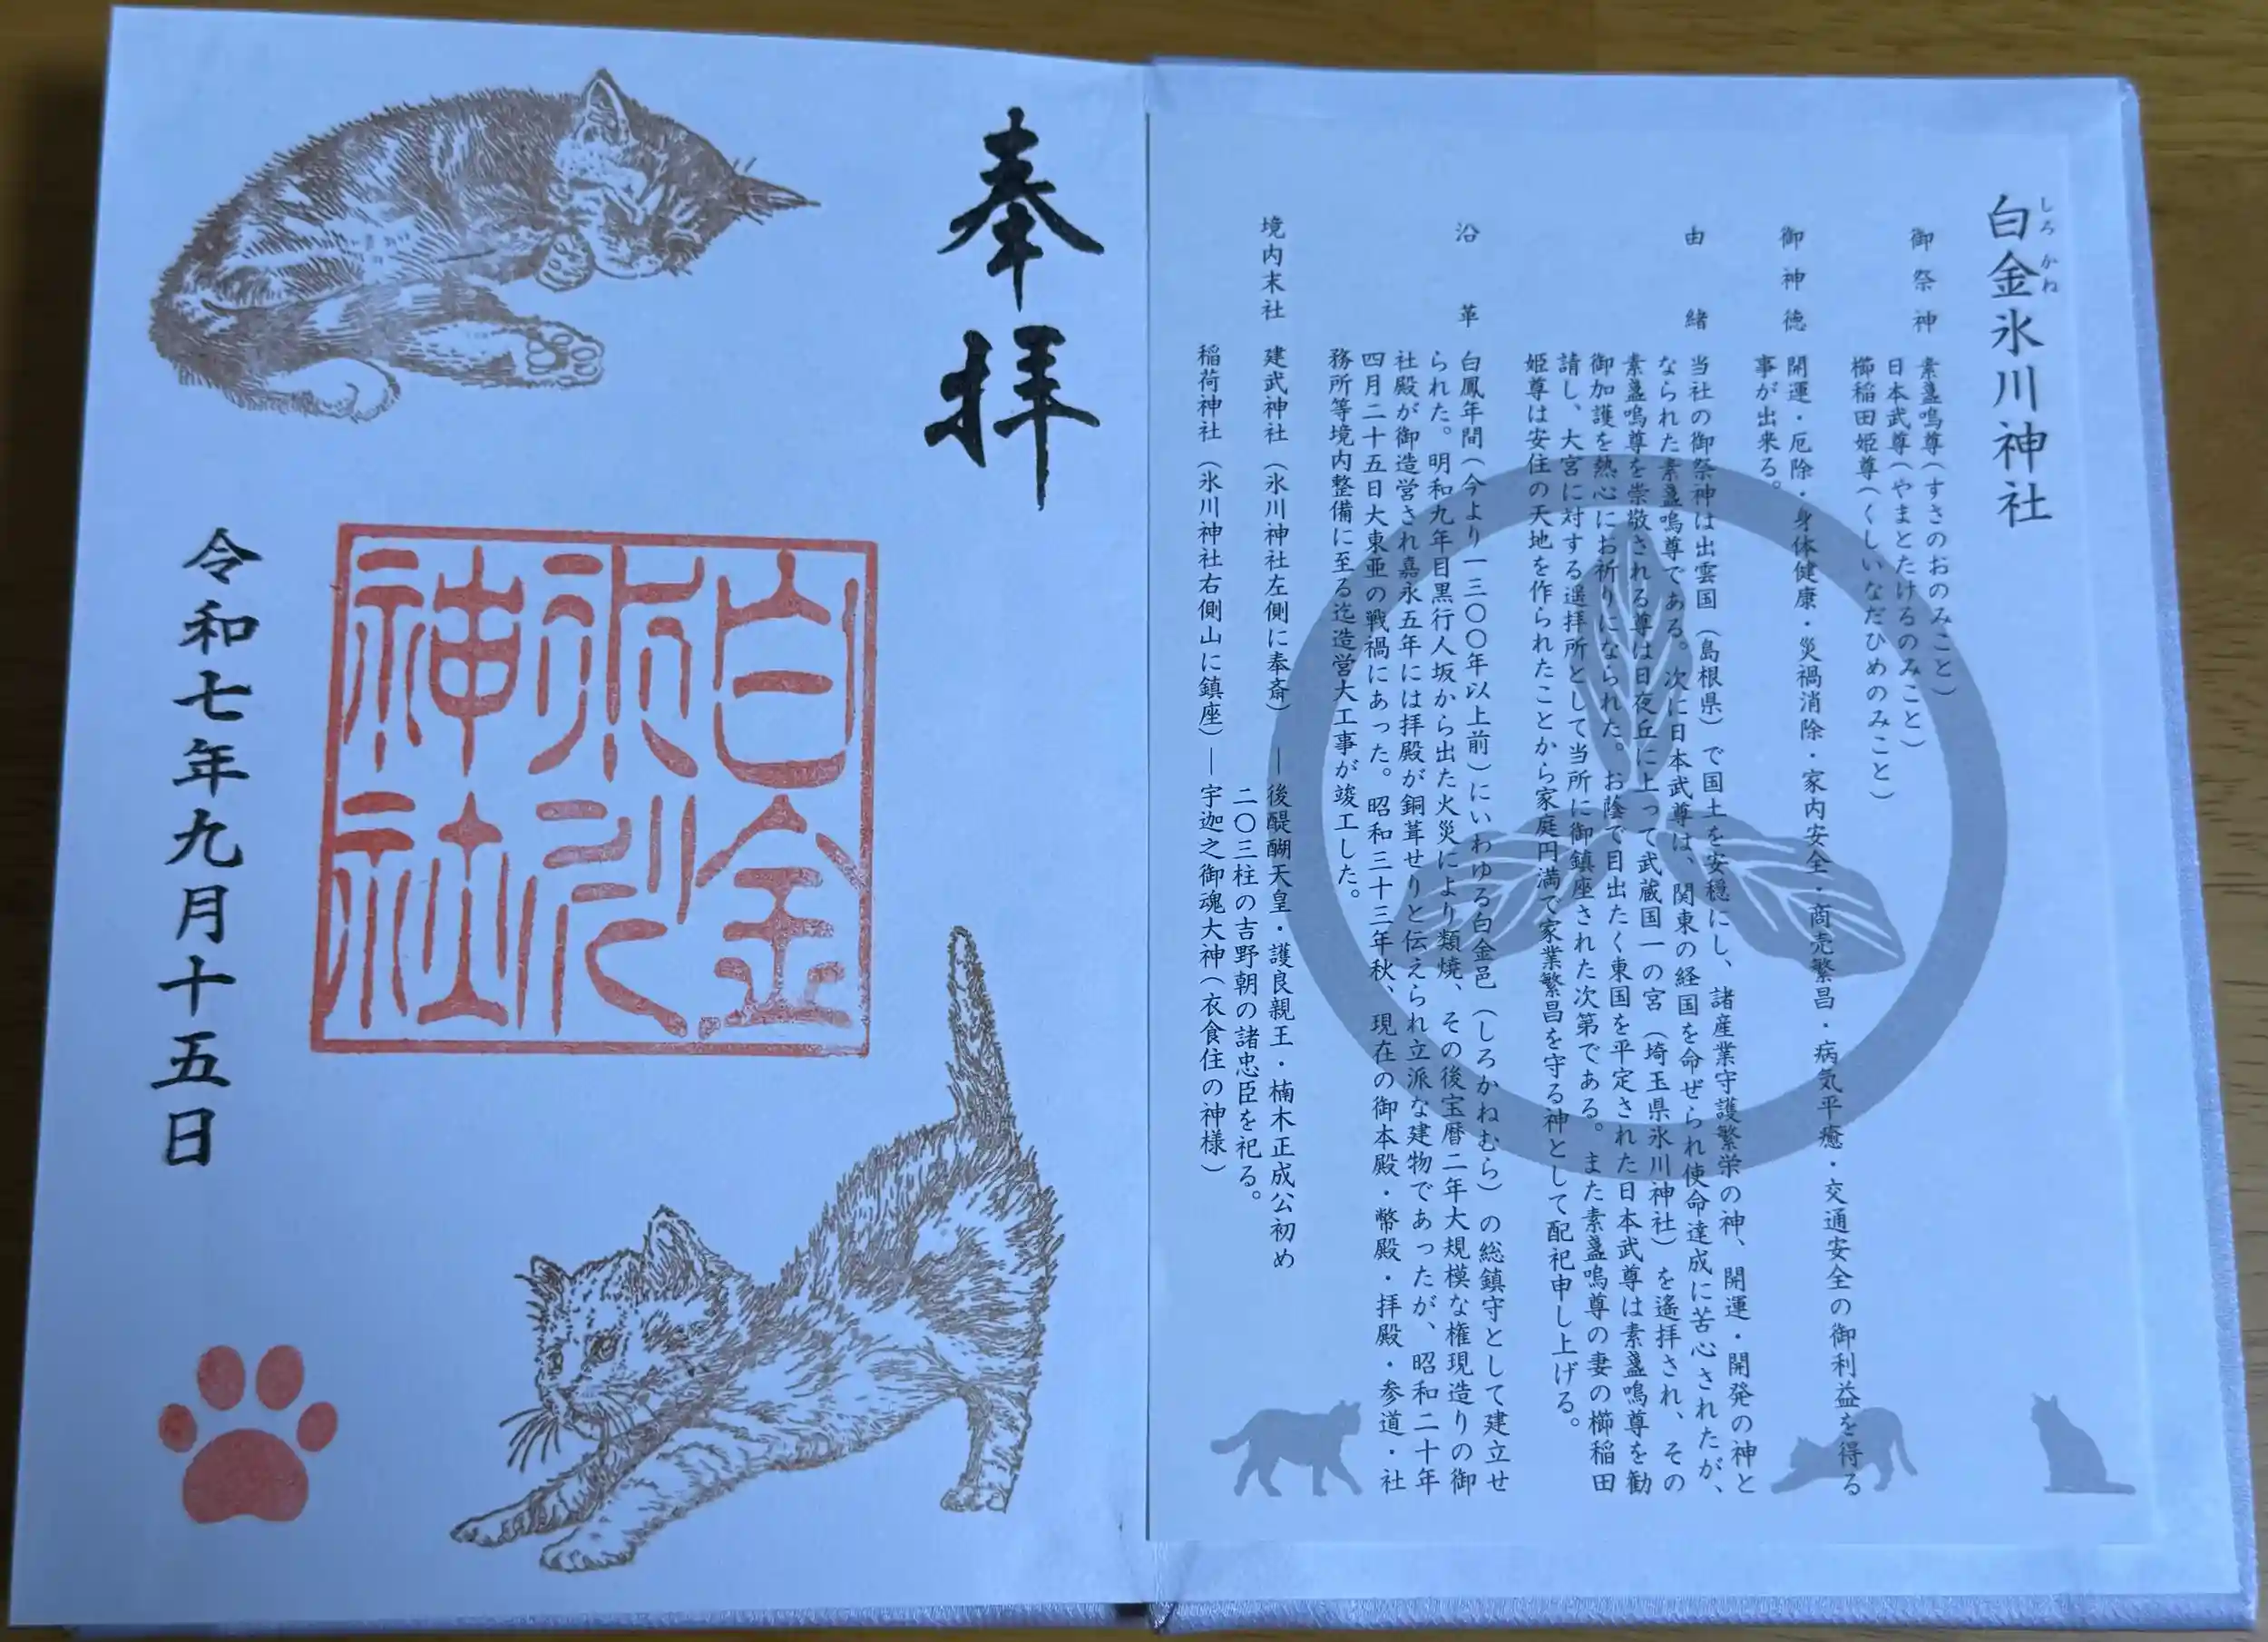 白金氷川神社
しろかね
御祭神
素盞嗚尊(すさのおのみこと)
日本武尊(やまとたけるのみこと)
櫛稲田姫尊(くしいなだひめのみこと)
御神徳
開運・厄除・身体健康・災禍消除・家内安全・商売繁昌・病気平癒・交通安全の御利益を得る
事が出来る。
由緒
当社の御祭神は出雲国(島根県)で国土を安穏にし、諸産業守護繁栄の神、開運・開発の神と
なられた素盞嗚尊である。次に日本武尊は、関東の経国を命ぜられ使命達成に苦心されたが、
素盞嗚尊を崇敬される尊は日夜丘に上って武蔵国一の宮(埼玉県氷川神社)を遙拝され、その
御加護を熱心にお祈りになられた。お陰で目出たく東国を平定された日本武尊は素盞嗚尊を勧
請し、大宮に対する遥拝所として当所に御鎮座された次第である。また素盞嗚尊の妻の櫛稲田
姫尊は安住の天地を作られたことから家庭円満で家業繁昌を守る神として配祀申し上げる。
沿革
白鳳年間(今より一三〇〇年以上前)にいわゆる白金邑(しろかねむら)の総鎮守として建立せ
られた。明和九年目黒行人坂から出た火災により類焼、その後宝暦二年大規模な権現造りの御
社殿が御造営され嘉永五年には拝殿が銅葺せりと伝えられ立派な建物であったが、昭和二十年
四月二十五日大東亜の戦禍にあった。昭和三十三年秋、現在の御本殿・幣殿・拝殿・参道・社
務所等境内整備に至る迄造営大工事が竣工した。
境内末社
建武神社(氷川神社左側に奉斎)―後醍醐天皇・護良親王・楠木正成公初め
二〇三柱の吉野朝の諸忠臣を祀る。
稲荷神社(氷川神社右側山に鎮座)―宇迦之御魂大神(衣食住の神様)
奉拝
白金
氷川
神社
令和七年九月十五日